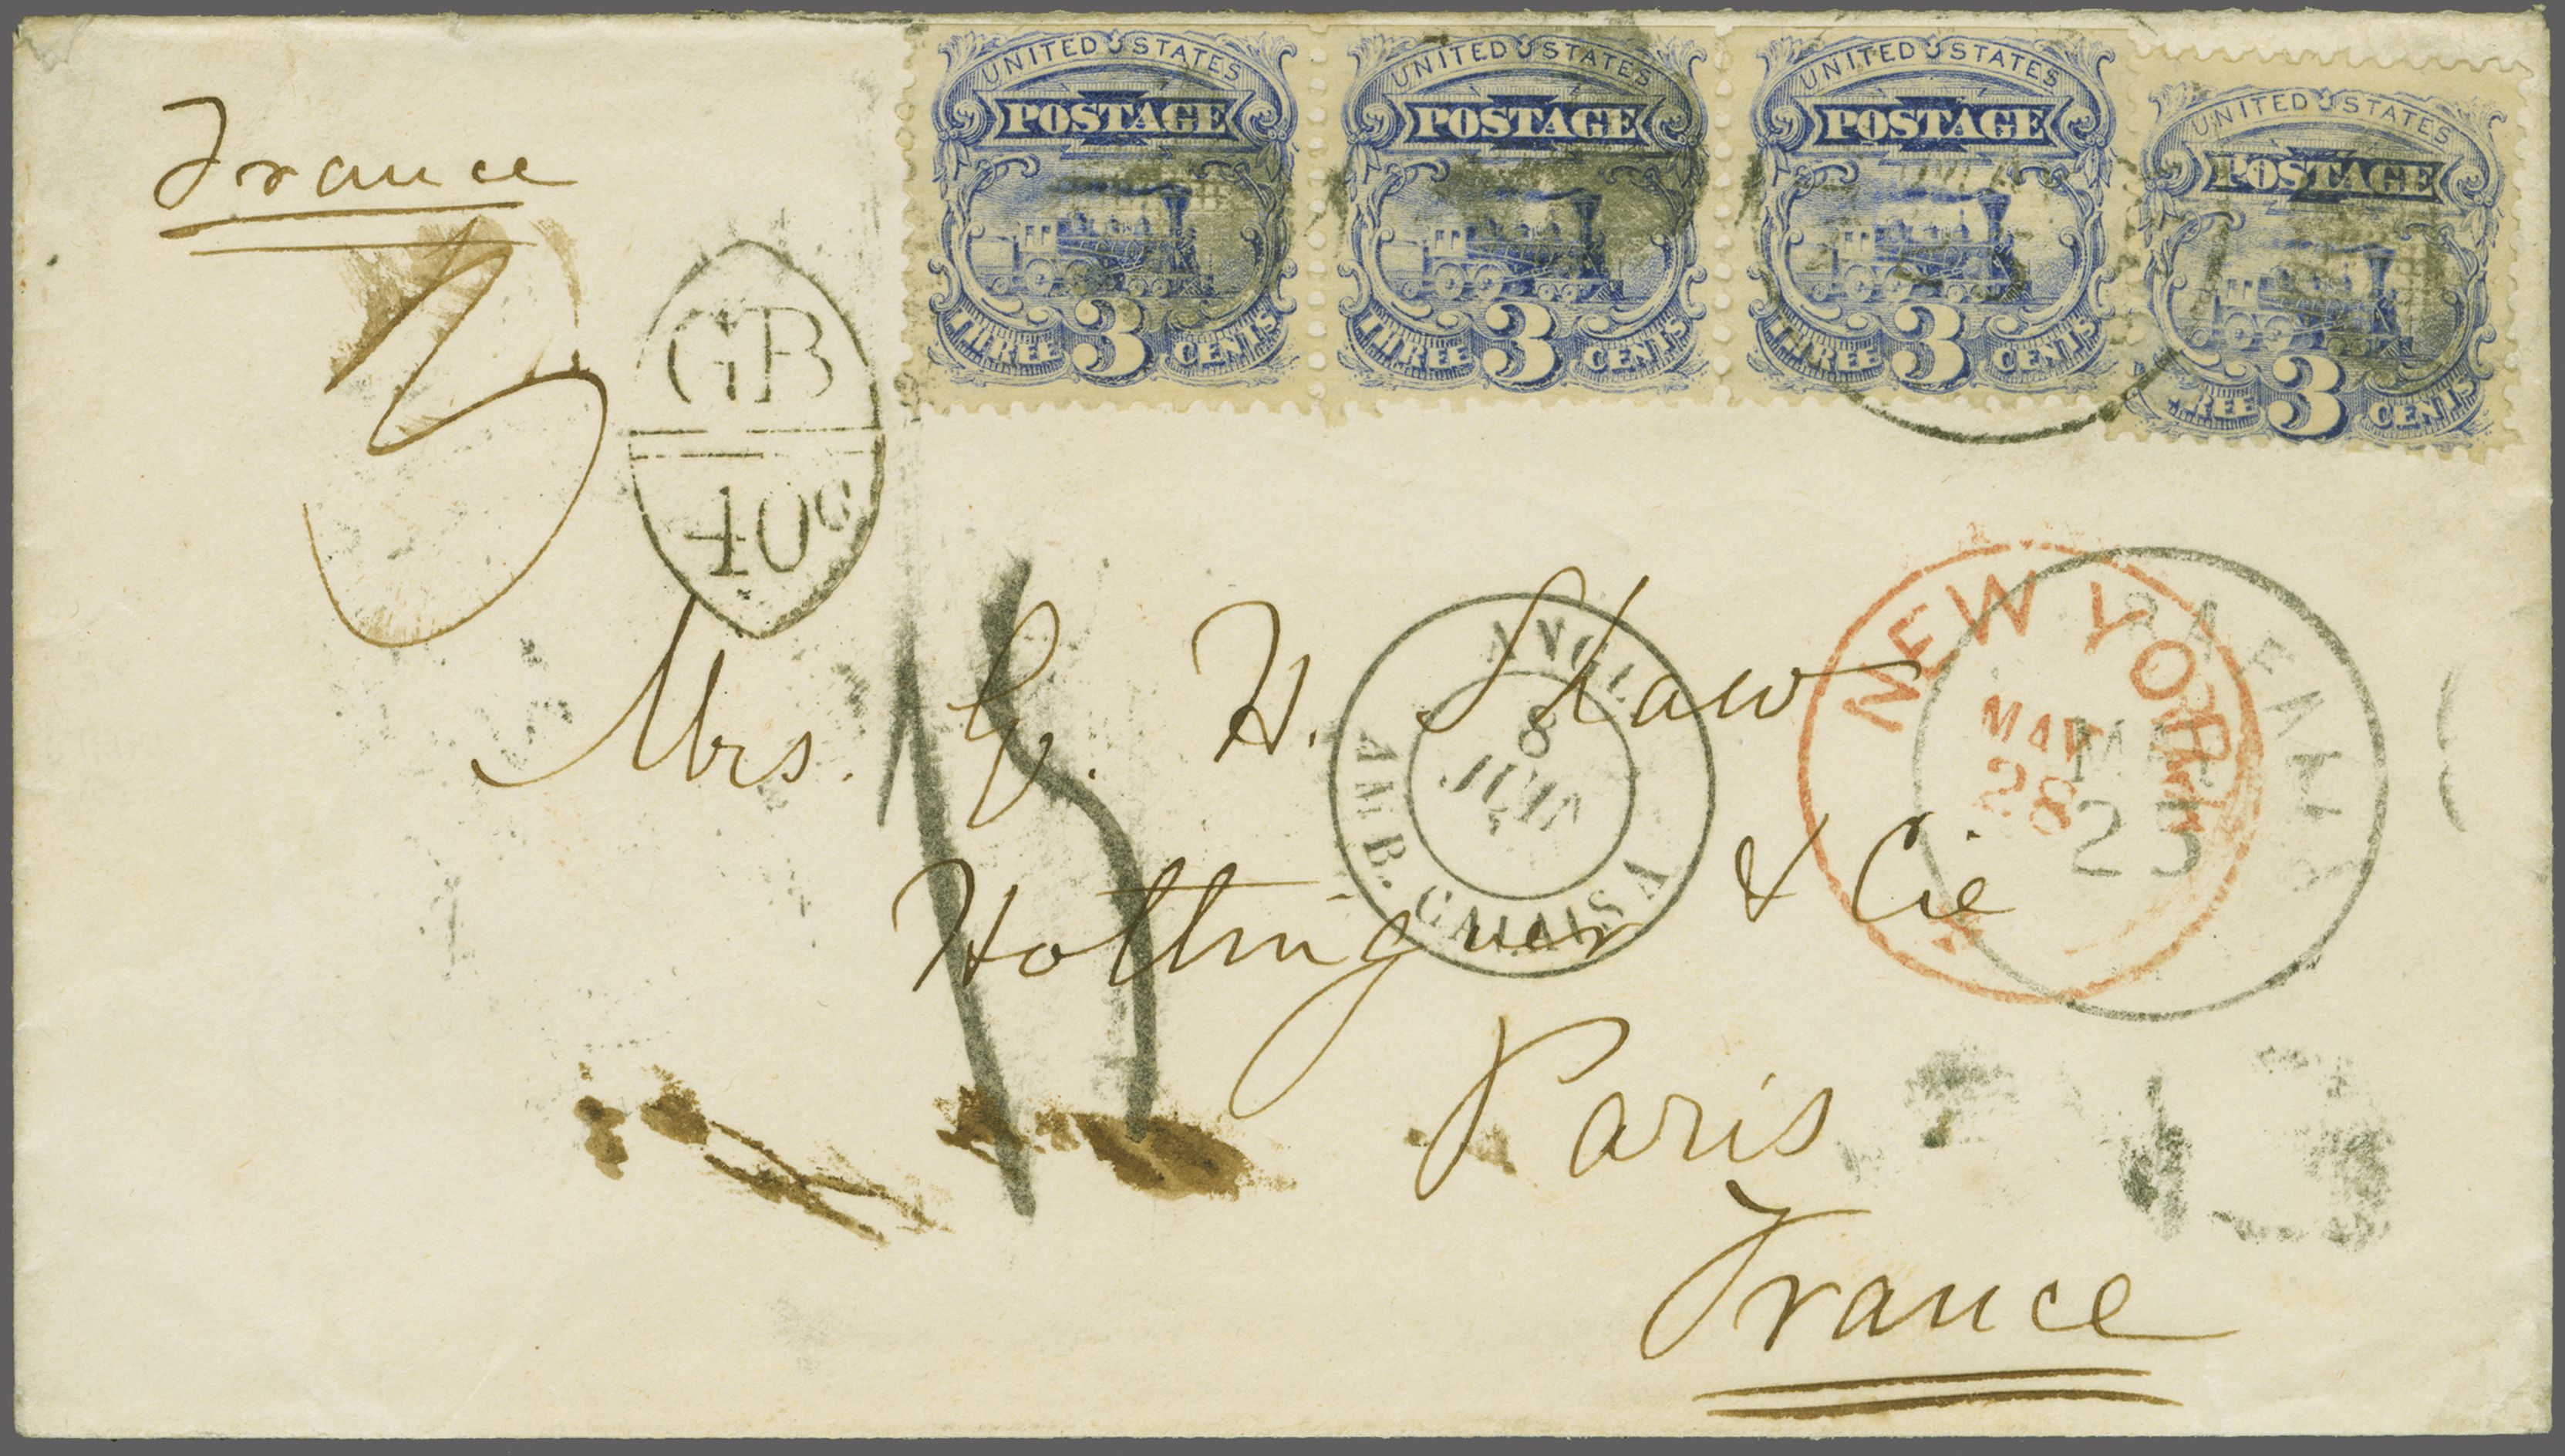 UNITED STATES
POSTAGE
THREE 3 CENTS
UNITED STATES
POSTAGE
THREE 3 CENTS
UNITED STATES
POSTAGE
THREE 3 CENTS
UNITED STATES
POSTAGE
3 CENTS
France
3
GB
40c
15
NEW YORK
MAY
28
ANGL.
8
JUIN
AMB. CALAIS A
Mrs. G. H. Shaw
Hottinguer & Cie
Paris
France